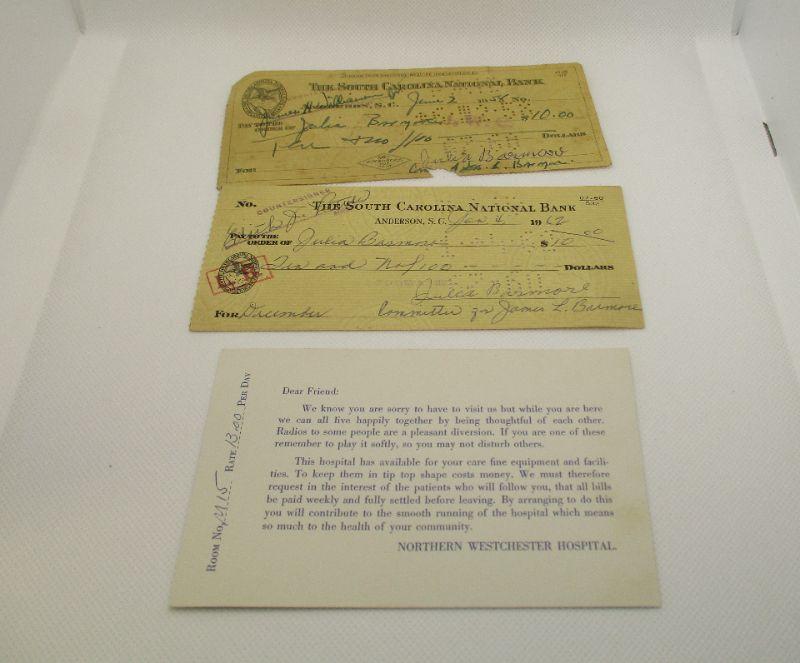 The South Carolina National Bank
Anderson, S.C. June 2 1948 No.
Pay to the
order of Julia Barmore $10.00
Ten and no/100 Dollars
For Julia Barmore
L. Barmore
No. The South Carolina National Bank
COUNTERSIGNED
Anderson, S.C. Jan 4 1962
Pay to the
order of Julia Barmore $10 00
Ten and no/100 Dollars
Julia Barmore
For December Committee for James L. Barmore
Room No. Rate 13.00 Per Day
Dear Friend:
We know you are sorry to have to visit us but while you are here
we can all live happily together by being thoughtful of each other.
Radios to some people are a pleasant diversion. If you are one of these
remember to play it softly, so you may not disturb others.
This hospital has available for your care fine equipment and facili-
ties. To keep them in tip top shape costs money. We must therefore
request in the interest of the patients who will follow you, that all bills
be paid weekly and fully settled before leaving. By arranging to do this
you will contribute to the smooth running of the hospital which means
so much to the health of your community.
NORTHERN WESTCHESTER HOSPITAL.